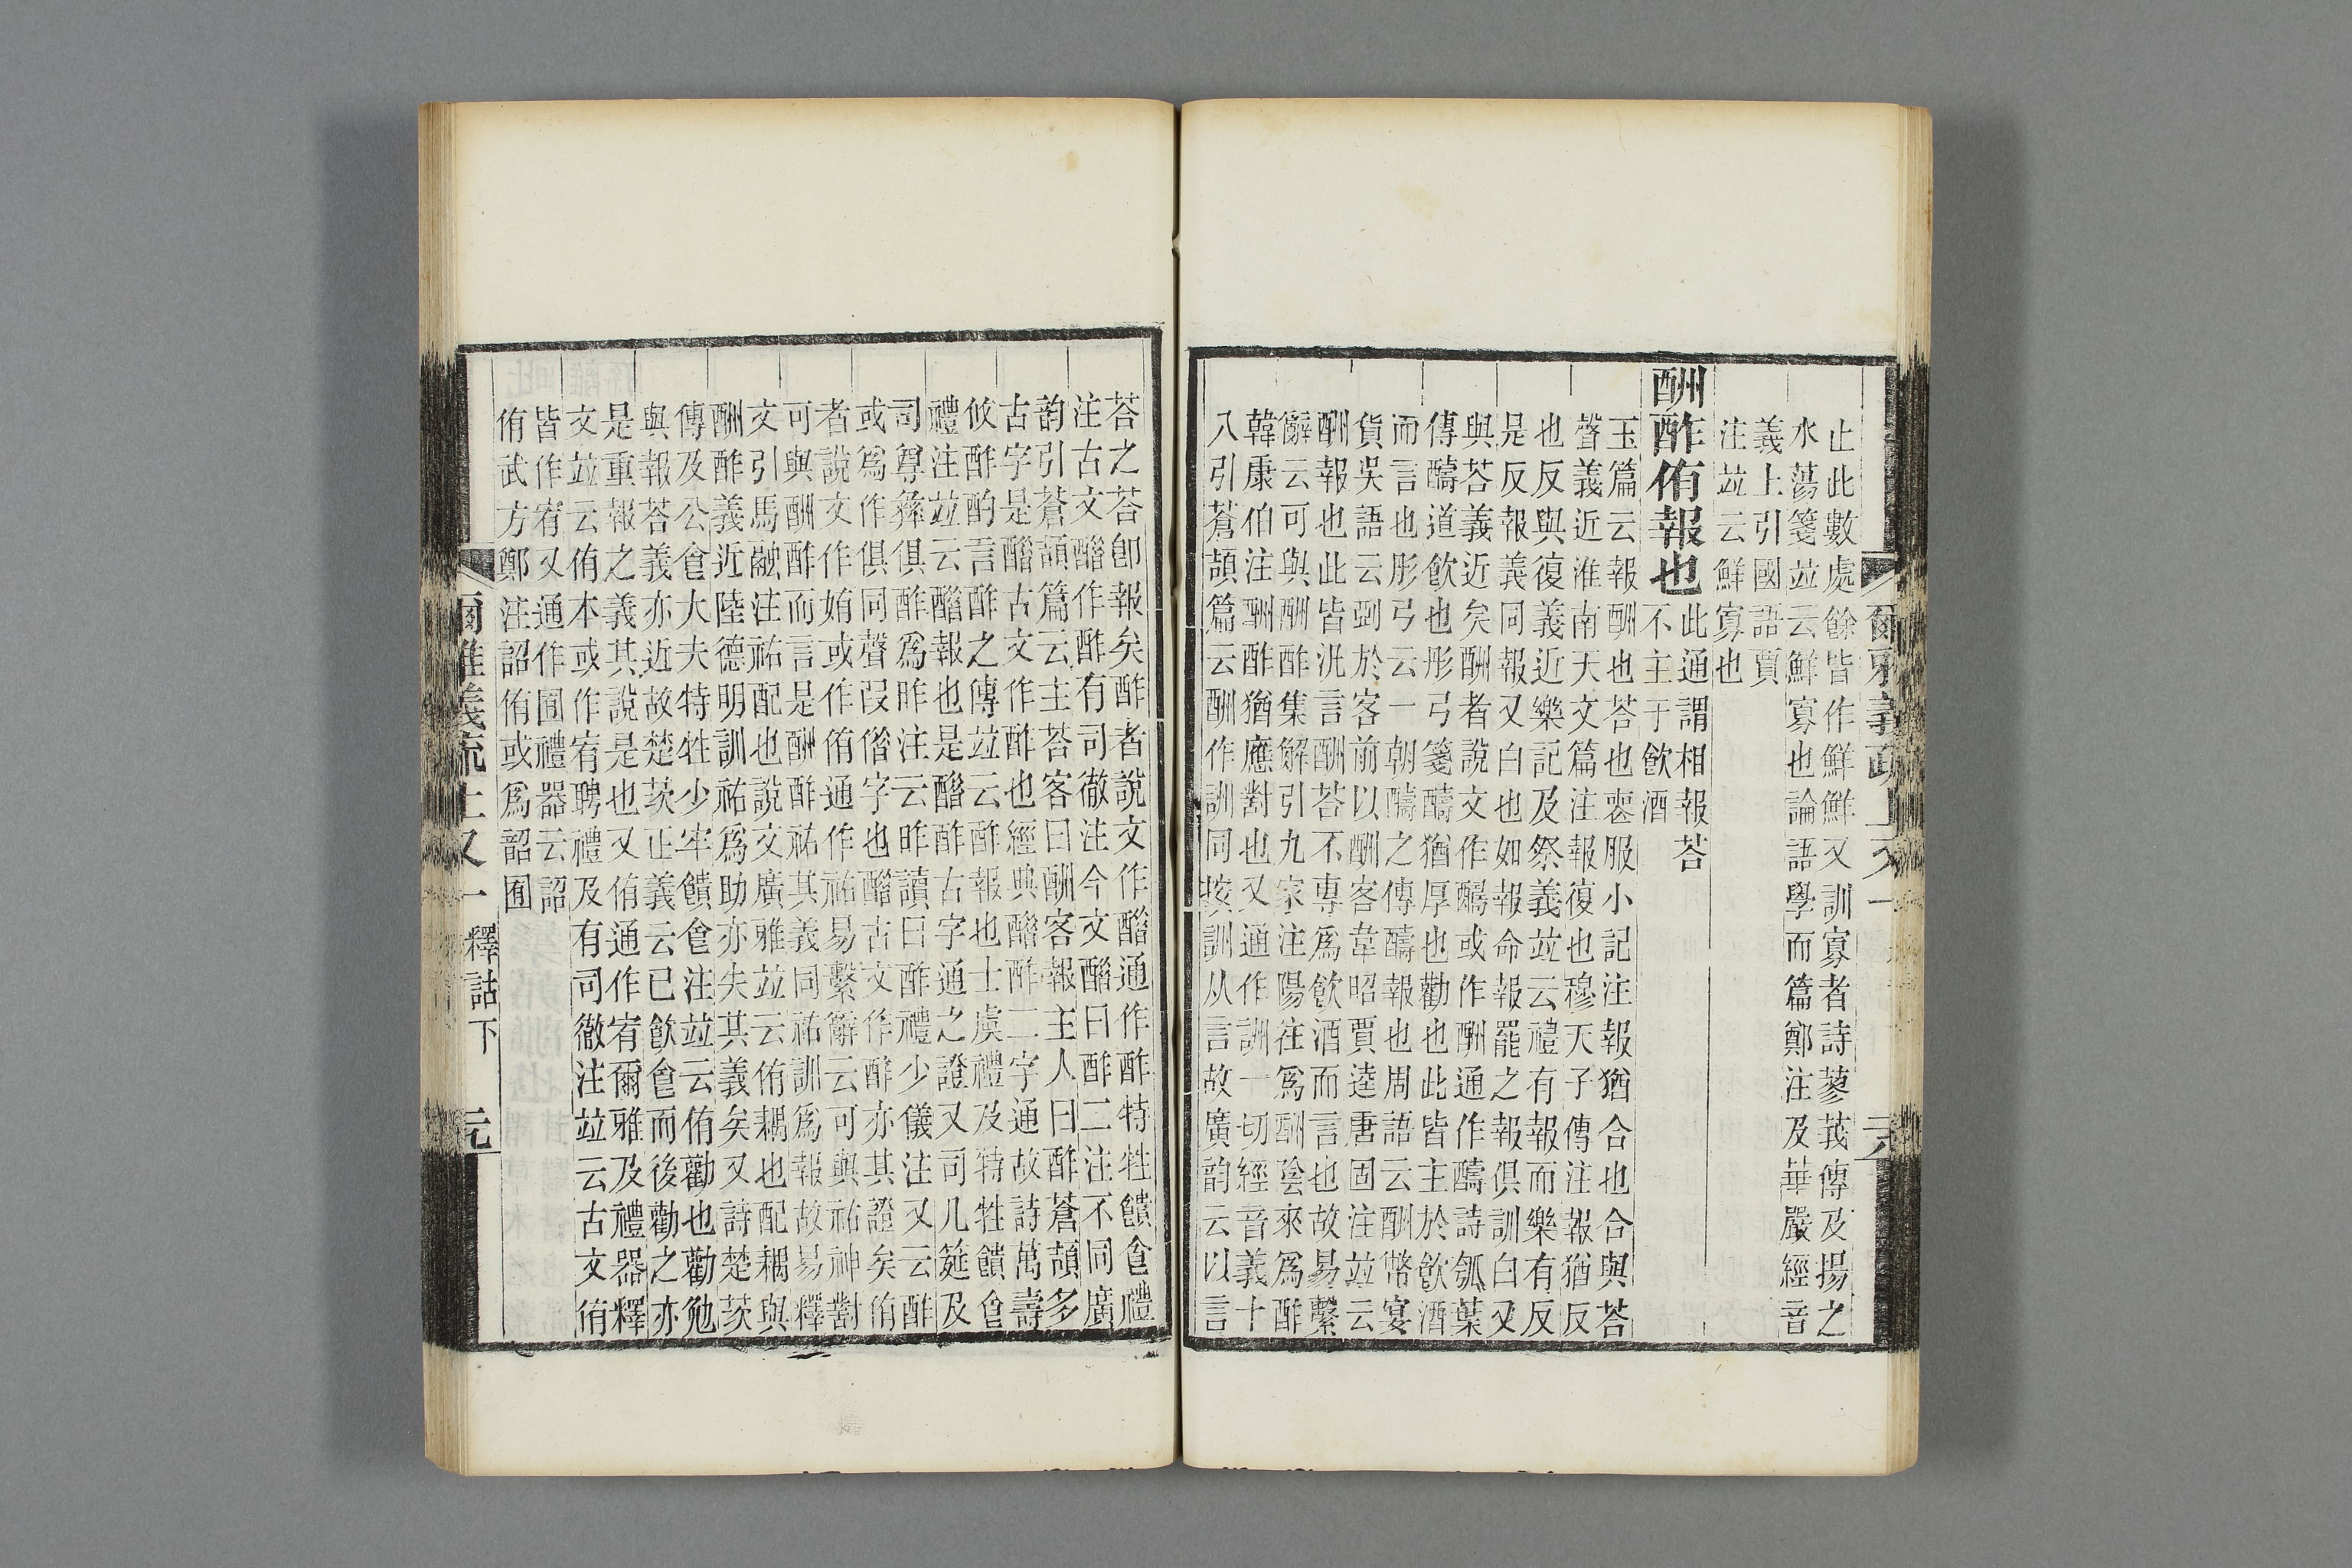 止此數處餘皆作鮮鮮又訓寡者詩蓼莪傳及揚之
水蕩箋竝云鮮寡也論語學而篇鄭注及華嚴經音
義上引國語賈
注竝云鮮寡也
酬酢侑報也
此通謂相報荅
不主于飲酒
玉篇云報酬也荅也喪服小記注報猶合也合與荅
聲義近淮南天文篇注報復也穆天子傳注報猶反
也反與復義近樂記及祭義竝云禮有報而樂有反
是反報義同報又白也如報命報罷之報俱訓白又
與荅義近矣酬者說文作醻或作酬通作醻詩瓠葉
傳醻道飲也彤弓箋醻猶厚也勸也此皆主於飲酒
而言也彤弓云一朝醻之傳醻報也周語云酬幣宴
貨吳語云劎於客前以酬客韋昭賈逵唐固注竝云
酬報也此皆汎言酬荅不專爲飲酒而言也故易繫
辭云可與酬酢集解引九家注陽往爲酬陰來爲酢
韓康伯注酬酢猶應對也又通作訓一切經音義十
八引蒼頡篇云酬作訓同 訓从言故廣韵云以言
荅之荅卽報矣酢者說文作醋通作酢特牲饋食禮
注古文醋作酢有司徹注今文醋曰酢二注不同廣
韵引蒼頡篇云主荅客曰酬客報主人曰酢蒼頡多
古字是醋古文作酢也經典醋酢二字通故詩萬壽
攸酢酌言酢之傳竝云酢報也士虞禮及特牲饋食
禮注竝云醋報也是醋酢古字通之證又司几筵及
司尊彝俱酢爲昨注云昨讀曰酢禮少儀注又云酢
或爲作作俱同聲叚借字也醋古文作酢亦其證矣侑
者說文作姷或作侑通作祐易繫辭云可與祐神對
可與酬酢而言是酬酢祐其義同祐訓爲報故易釋
文引馬融注祐配也說文廣雅竝云侑耦也配耦與
酬酢義近陸德明訓祐爲助亦失其義矣又詩楚茨
傳及公食大夫特牲少牢饋食注竝云侑勸也勸勉
與報荅義亦近故楚茨正義云已飲食而後勸之亦
是重報之義其說是也又侑通作宥爾雅及禮器釋
文竝云侑本或作宥聘禮及有司徹注竝云古文侑
皆作宥又通作囿禮器云詔
侑武方鄭注詔侑或爲詔囿
爾雅義疏上又一 釋詁下 元